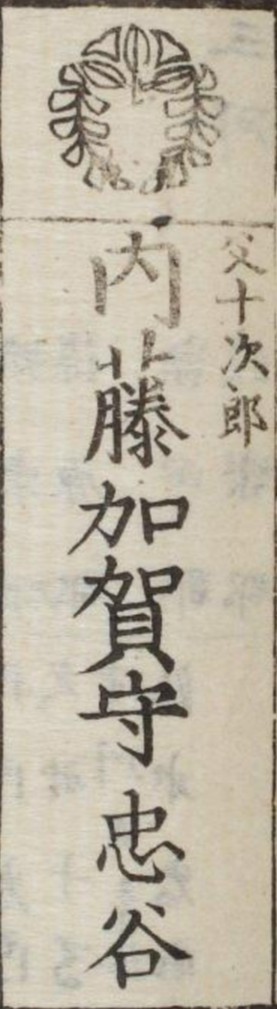 父十次郎
内藤加賀守忠谷